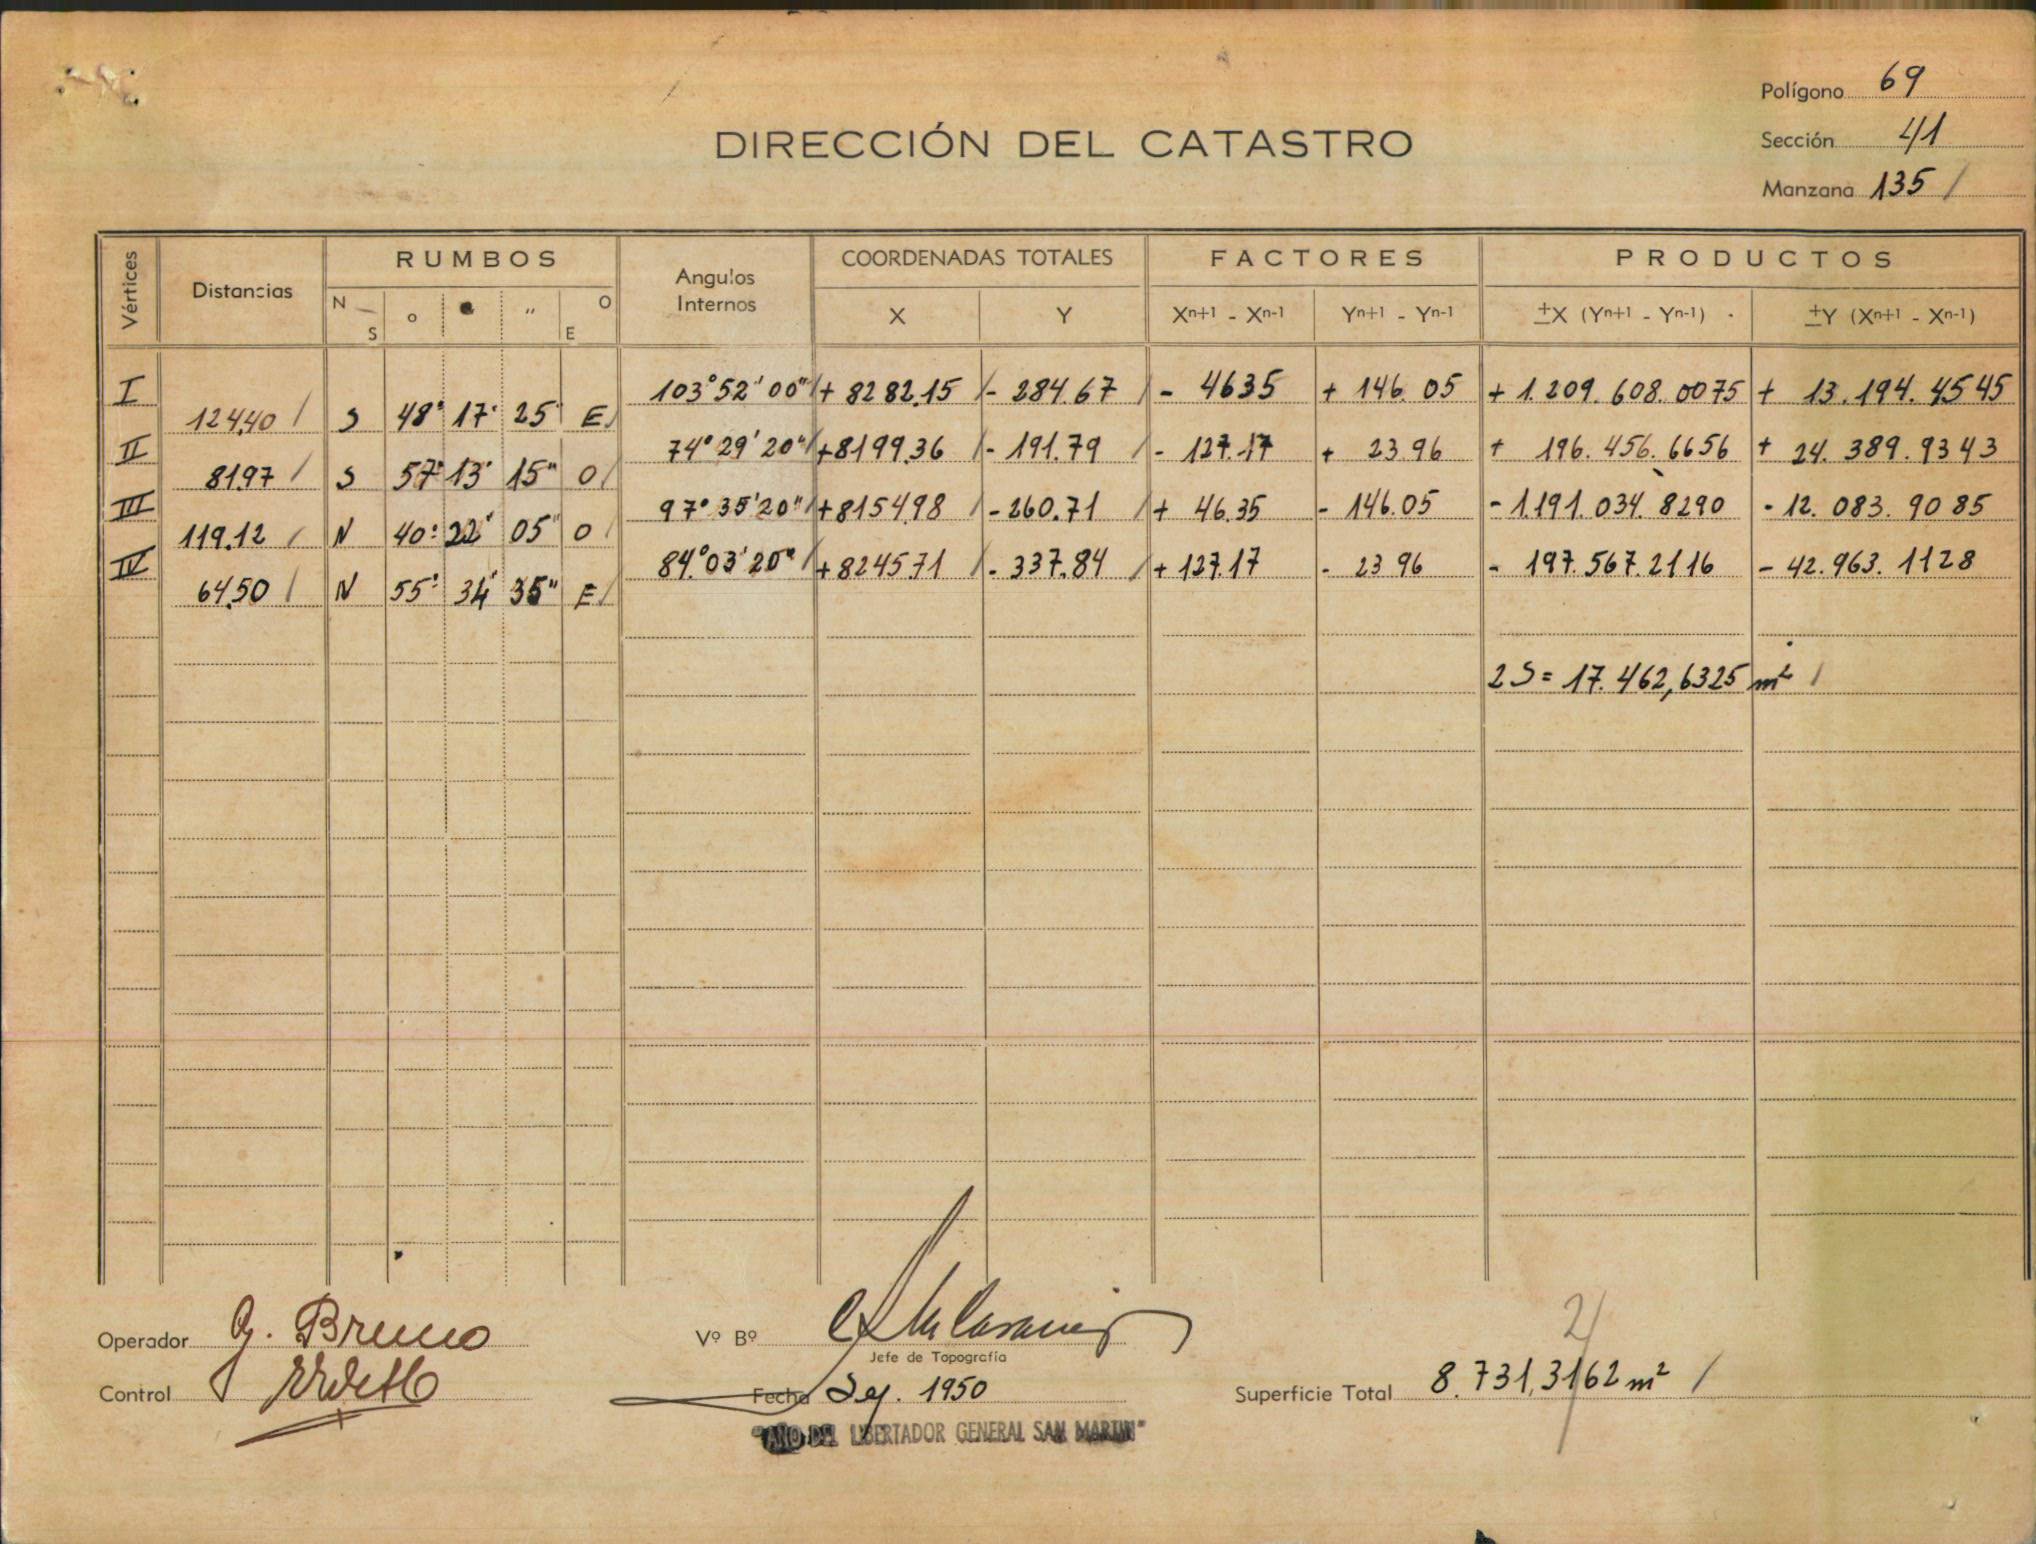 Polígono 69
DIRECCIÓN DEL CATASTRO
Sección 41
Manzana 135 /
Vértices Distancias RUMBOS Angulos Internos COORDENADAS TOTALES FACTORES PRODUCTOS
N S o " O E X Y Xn+1 - Xn-1 Yn+1 - Yn-1 ±X (Yn+1 - Yn-1) ±Y (Xn+1 - Xn-1)
I 103°52'00" / + 8282.15 / - 284.67 / - 4635 + 146.05 + 1.209.608.0075 + 13.194.4545
124.40 / S 48° 17' 25" E /
II 74°29'20" / + 8199.36 / - 191.79 / - 127.17 + 23.96 + 196.456.6656 + 24.389.9343
81.97 / S 57° 13' 15" O /
III 97°35'20" / + 8154.98 / - 260.71 / + 46.35 - 146.05 - 1.191.034.8290 - 12.083.9085
119.12 / N 40° 22' 05" O /
IV 84°03'20" / + 8245.71 / - 337.84 / + 127.17 - 23 96 - 197.567.2116 - 42.963.1128
64.50 / N 55° 34' 35" E /
2S = 17.462,6325 m² /
2
Operador G. Bruno Vº Bº
Jefe de Topografía
Control Fecha Sep. 1950 Superficie Total 8.731,3162 m² /
"AÑO DEL LIBERTADOR GENERAL SAN MARTIN"